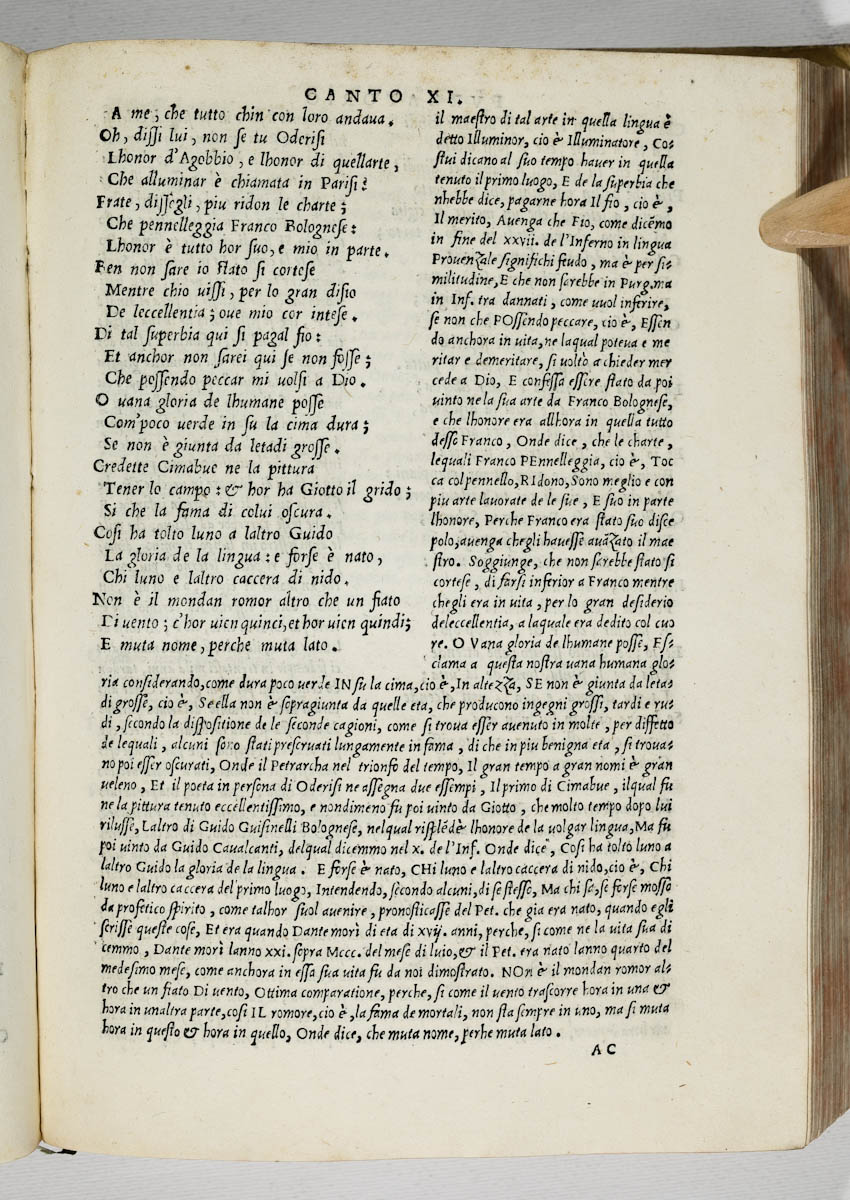 CANTO XI.
A me, che tutto chin con loro andaua.
Oh, dissi lui, non se tu Oderisi
Lhonor d'Agobbio, e lhonor di quellarte,
Che alluminar è chiamata in Parisi?
Frate, dissegli, piu ridon le charte;
Che pennelleggia Franco Bolognese:
Lhonor è tutto hor suo, e mio in parte.
Ben non sare io stato si cortese
Mentre chio uissi, per lo gran disio
De leccellentia; oue mio cor intese.
Di tal superbia qui si pagal fio:
Et anchor non sarei qui se non fosse;
Che possendo peccar mi uolsi a Dio.
O uana gloria de lhumane posse
Com'poco uerde in su la cima dura;
Se non è giunta da letadi grosse.
Credette Cimabue ne la pittura
Tener lo campo: & hor ha Giotto il grido;
Si che la fama di colui oscura.
Cosi ha tolto luno a laltro Guido
La gloria de la lingua: e forse è nato,
Chi luno e laltro caccera di nido.
Non è il mondan romor altro che un fiato
Di uento; c'hor uien quinci, et hor uien quindi;
E muta nome, perche muta lato.
il maestro di tal arte in quella lingua è
detto Illuminor, cio è Illuminatore, Co=
stui dicano al suo tempo hauer in quella
tenuto il primo luogo, E de la superbia che
nhebbe dice, pagarne hora Il fio, cio è,
Il merito, Auenga che Fio, come dicẽmo
in fine del xxvii. de l'Inferno in lingua
Prouenzale significhi feudo, ma è per si=
militudine, E che non sarebbe in Purg.ma
in Inf. tra dannati, come uuol inferire,
se non che POssendo peccare, cio è, Essen
do anchora in uita, ne laqual poteua e me
ritar e demeritare, si uoltò a chieder mer
cede a Dio, E confessa essere stato da poi
uinto ne la sua arte da Franco Bolognese,
e che lhonore era allhora in quella tutto
desso Franco, Onde dice, che le charte,
lequali Franco PEnnelleggia, cio è, Toc
ca col pennello, RIdono, Sono meglio e con
piu arte lauorate de le sue, E suo in parte
lhonore, Perche Franco era stato suo disce
polo, auenga chegli hauesse auãzato il mae
stro. Soggiunge, che non sarebbe stato si
cortese, di farsi inferior a Franco mentre
chegli era in uita, per lo gran desiderio
deleccellentia, a laquale era dedito col cuo
re. O Vana gloria de lhumane posse, Es=
clama a questa nostra uana humana glo=
ria considerando, come dura poco uerde IN su la cima, cio è, In altezza, SE non è giunta da leta=
di grosse, cio è, Se ella non è sopragiunta da quelle eta, che producono ingegni grossi, tardi e ru=
di, secondo la dispositione de le seconde cagioni, come si troua esser auenuto in molte, per diffetto
de lequali, alcuni sono stati preseruati lungamente in fama, di che in piu benigna eta, si troua=
no poi esser oscurati, Onde il Petrarcha nel trionfo del tempo, Il gran tempo a gran nomi è gran
ueleno, Et il poeta in persona di Oderisi ne assegna due essempi, Il primo di Cimabue, ilqual fu
ne la pittura tenuto eccellentissimo, e nondimeno fu poi uinto da Giotto, che molto tempo dopo lui
rilusse, Laltro di Guido Guisinelli Bolognese, nelqual risplẽdè lhonore de la uolgar lingua, Ma fu
poi uinto da Guido Caualcanti, delqual dicemmo nel x. de l'Inf. Onde dice, Cosi ha tolto luno a
laltro Guido la gloria de la lingua. E forse è nato, CHi luno e laltro caccera di nido, cio è, Chi
luno e laltro caccera del primo luogo, Intendendo, secondo alcuni, di se stesso, Ma chi sa, se forse mosso
da profetico spirito, come talhor suol auenire, pronosticasse del Pet. che gia era nato, quando egli
scrisse queste cose, Et era quando Dante morì di eta di xvij. anni, perche, si come ne la uita sua di
cemmo, Dante morì lanno xxi. sopra Mccc. del mese di luio, & il Pet. era nato lanno quarto del
medesimo mese, come anchora in essa sua uita fu da noi dimostrato. NOn è il mondan romor al=
tro che un fiato Di uento, Ottima comparatione, perche, si come il uento trascorre hora in una &
hora in unaltra parte, cosi IL romore, cio è, la fama de mortali, non sta sempre in uno, ma si muta
hora in questo & hora in quello, Onde dice, che muta nome, perhe muta lato.
AC